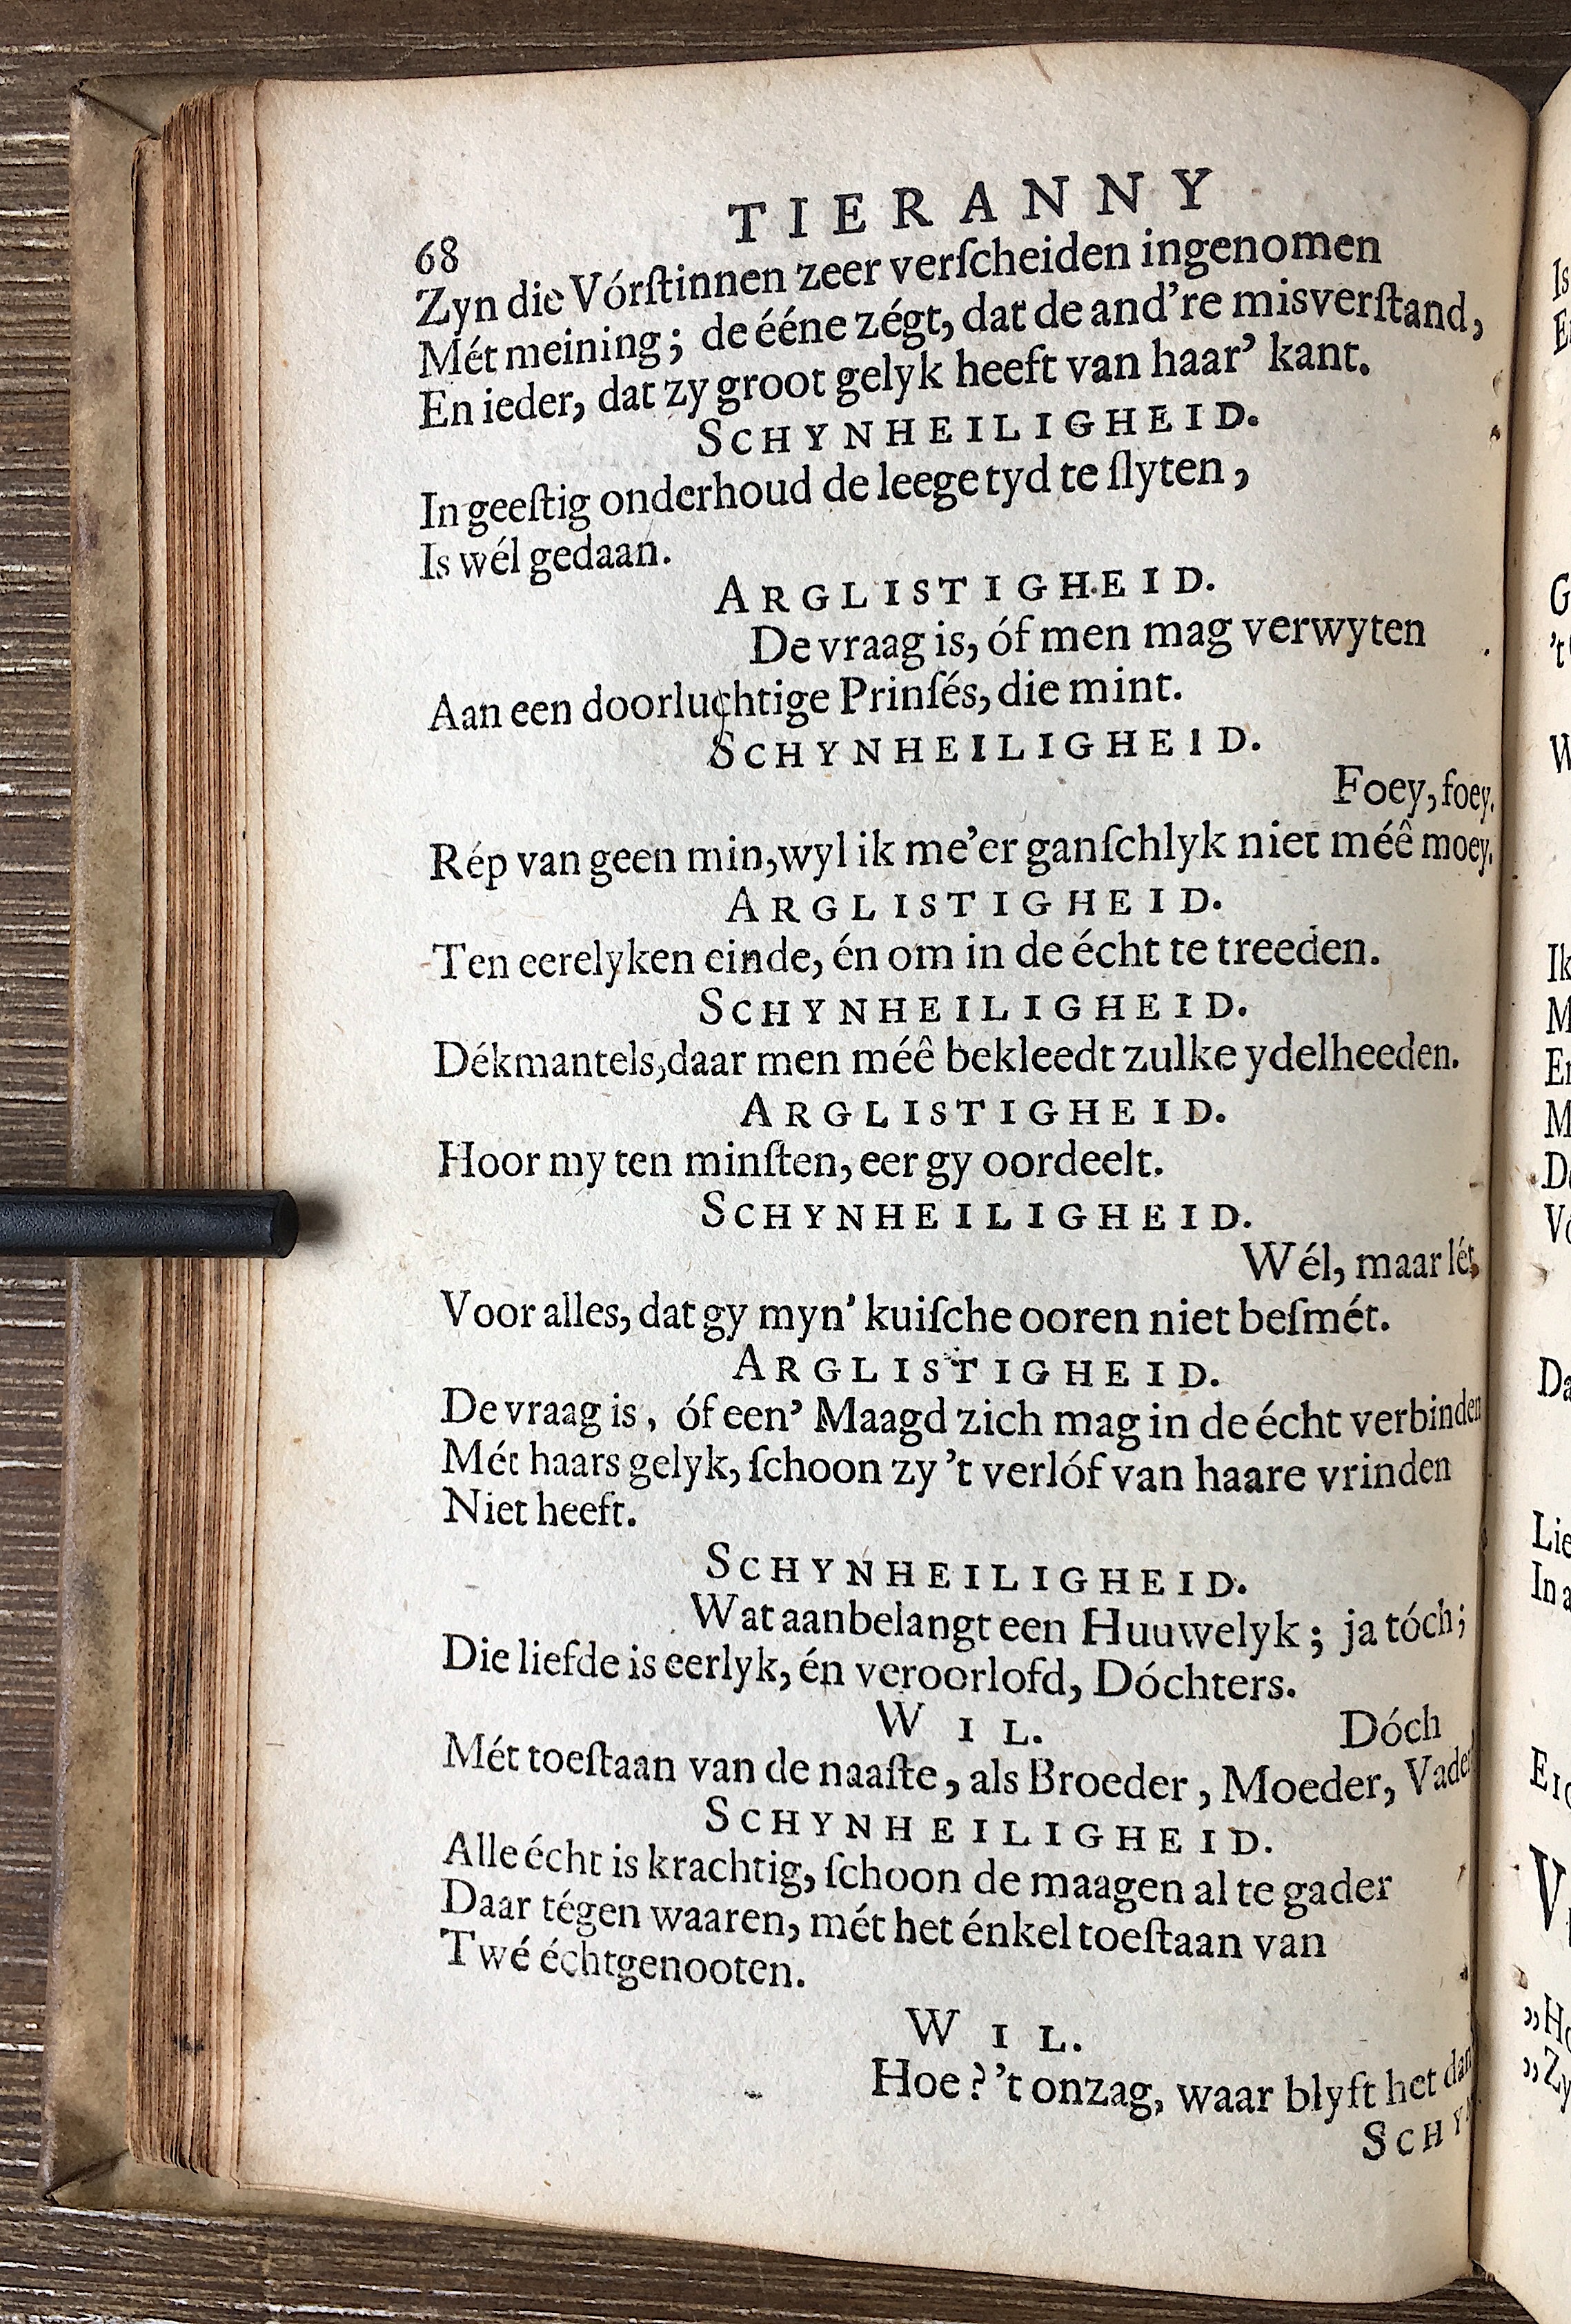 TIERANNY
68
Zyn die Vórſtinnen zeer verſcheiden ingenomen
Mét meining; de ééne zégt, dat de and're misverſtand,
En ieder, dat zy groot gelyk heeft van haar' kant.
SCHYNHEILIGHEID.
In geeſtig onderhoud de leege tyd te ſlyten,
Is wél gedaan.
ARGLISTIGHEID.
De vraag is, óf men mag verwyten
Aan een doorluchtige Prinſés, die mint.
SCHYNHEILIGHEID.
Foey, foey.
Rép van geen min, wyl ik me'er ganſchlyk niet méê moey.
ARGLISTIGHEID.
Ten eerelyken einde, én om in de écht te treeden.
SCHYNHEILIGHEID.
Dékmantels, daar men méê bekleedt zulke ydelheeden.
ARGLISTIGHEID.
Hoor my ten minſten, eer gy oordeelt.
SCHYNHEILIGHEID.
Wél, maar lét,
Voor alles, dat gy myn' kuiſche ooren niet beſmét.
ARGLISTIGHEID.
De vraag is, óf een' Maagd zich mag in de écht verbinden
Mét haars gelyk, ſchoon zy 't verlóf van haare vrinden
Niet heeft.
SCHYNHEILIGHEID.
Wat aanbelangt een Huuwelyk; ja tóch;
Die liefde is eerlyk, én veroorlofd, Dóchters.
WIL.
Dóch
Mét toeſtaan van de naaſte, als Broeder, Moeder, Vader
SCHYNHEILIGHEID.
Alle écht is krachtig, ſchoon de maagen al te gader
Daar tégen waaren, mét het énkel toeſtaan van
Twé échtgenooten.
WIL.
Hoe? 't onzag, waar blyft het dan
SCHY
Is
G
't
W
Ik
M
En
M
De
Da
Lie
In a
EIG
V
„Ho
„Zy